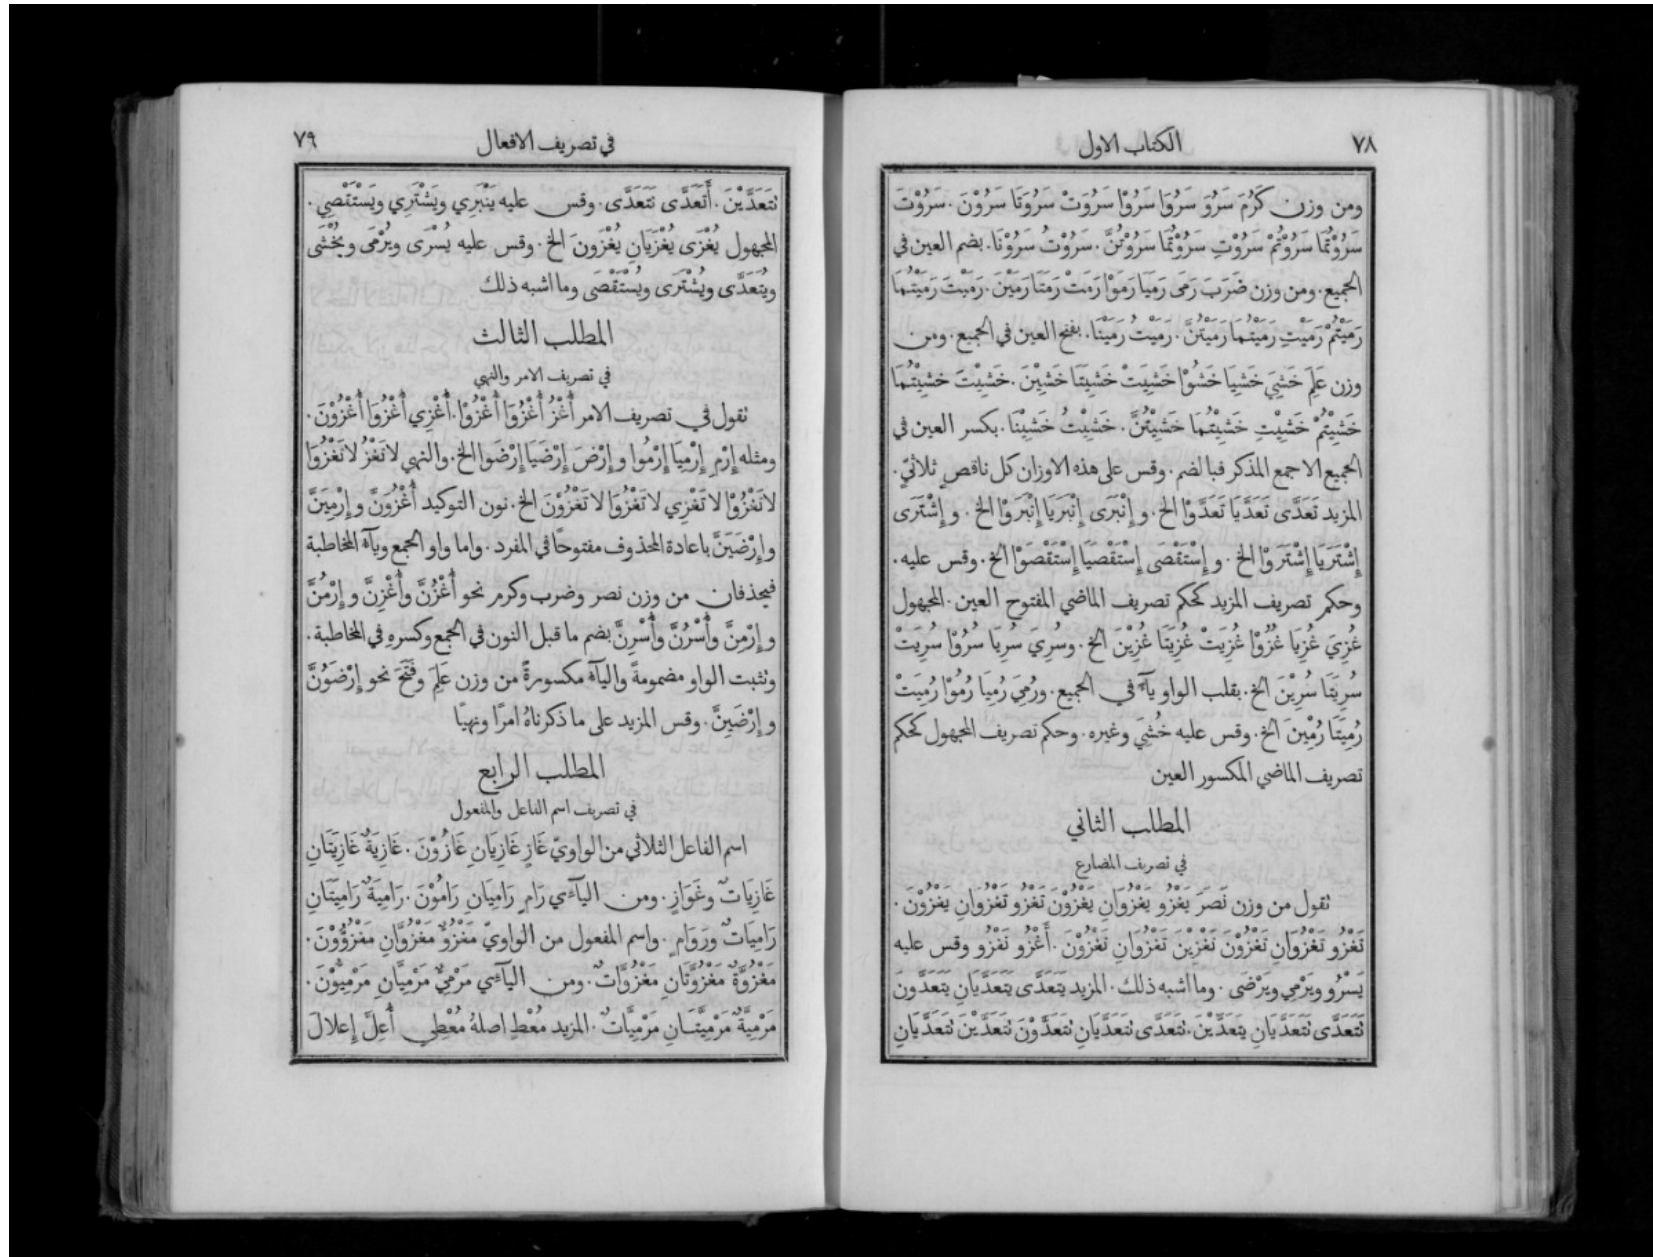 ٧٨
الكتاب الاول
ومن وزن كَرُمَ سَرُوَ سَرُوَا سَرُوْا سَرُوَتْ سَرُوَتَا سَرُوْنَ. سَرُوْتَ
سَرُوْتُمَا سَرُوْتُمْ سَرُوْتِ سَرُوْتُمَا سَرُوْتُنَّ. سَرُوْتُ سَرُوْنَا. بضم العين في
الجميع. ومن وزن ضَرَبَ رَمَى رَمَيَا رَمَوْا رَمَتْ رَمَتَا رَمَيْنَ. رَمَيْتَ رَمَيْتُمَا
رَمَيْتُمْ رَمَيْتِ رَمَيْتُمَا رَمَيْتُنَّ. رَمَيْتُ رَمَيْنَا. بفتح العين في الجميع. ومن
وزن عَلِمَ خَشِيَ خَشِيَا خَشُوْا خَشِيَتْ خَشِيَتَا خَشِيْنَ. خَشِيْتَ خَشِيْتُمَا
خَشِيْتُمْ خَشِيْتِ خَشِيْتُمَا خَشِيْتُنَّ. خَشِيْتُ خَشِيْنَا. بكسر العين في
الجميع الا جمع المذكر فبالضم. وقس على هذه الاوزان كل ناقصٍ ثلاثيّ.
المزيد تَعَدَّى تَعَدَّيَا تَعَدَّوْا الخ. وإِنْبَرَى إِنْبَرَيَا إِنْبَرَوْا الخ. وإِشْتَرَى
إِشْتَرَيَا إِشْتَرَوْا الخ. وإِسْتَقْصَى إِسْتَقْصَيَا إِسْتَقْصَوْا الخ. وقس عليه.
وحكم تصريف المزيد كحكم تصريف الماضي المفتوح العين. المجهول
غُزِيَ غُزِيَا غُزُوْا غُزِيَتْ غُزِيَتَا غُزِيْنَ الخ. وسُرِيَ سُرِيَا سُرُوْا سُرِيَتْ
سُرِيَتَا سُرِيْنَ الخ. بقلب الواو ياءً في الجميع. ورُمِيَ رُمِيَا رُمُوْا رُمِيَتْ
رُمِيَتَا رُمِيْنَ الخ. وقس عليه خُشِيَ وغيره. وحكم تصريف المجهول كحكم
تصريف الماضي المكسور العين
المطلب الثاني
في تصريف المضارع
نقول من وزن نَصَرَ يَغْزُو يَغْزُوَانِ يَغْزُوْنَ تَغْزُو تَغْزُوَانِ يَغْزُوْنَ.
تَغْزُو تَغْزُوَانِ تَغْزُوْنَ تَغْزِيْنَ تَغْزُوَانِ تَغْزُوْنَ. أَغْزُو نَغْزُو وقس عليه
يَسْرُو ويَرْمِي ويَرْضَى. وما اشبه ذلك. المزيد يَتَعَدَّى يَتَعَدَّيَانِ يَتَعَدَّوْنَ
تَتَعَدَّى تَتَعَدَّيَانِ يَتَعَدَّيْنَ. تَتَعَدَّى تَتَعَدَّيَانِ تَتَعَدَّوْنَ تَتَعَدَّيْنَ تَتَعَدَّيَانِ
في تصريف الافعال
٧٩
تَتَعَدَّيْنَ. أَتَعَدَّى نَتَعَدَّى. وقس عليه يَنْبَرِي ويَشْتَرِي ويَسْتَقْصِي.
المجهول يُغْزَى يُغْزَيَانِ يُغْزَوْنَ الخ. وقس عليه يُسْرَى ويُرْمَى ويُخْشَى
ويُتَعَدَّى ويُشْتَرَى ويُسْتَقْصَى وما اشبه ذلك
المطلب الثالث
في تصريف الامر والنهي
نقول في تصريف الامر أُغْزُ أُغْزُوَا أُغْزُوْا. أُغْزِي أُغْزُوَا أُغْزُوْنَ.
ومثله إِرْمِ إِرْمِيَا إِرْمُوا وإِرْضَ إِرْضَيَا إِرْضَوا الخ. والنهي لا تَغْزُ لا تَغْزُوَا
لا تَغْزُوْا لا تَغْزِي لا تَغْزُوَا لا تَغْزُوْنَ الخ. نون التوكيد أُغْزُوَنَّ وإِرْمِيَنَّ
وإِرْضَيَنَّ باعادة المحذوف مفتوحًا في المفرد. واما واو الجمع ويآء المخاطبة
فيحذفان من وزن نصر وضرب وكرم نحو أُغْزُنَّ وأُغْزِنَّ وإِرْمُنَّ
وإِرْمِنَّ وأُسْرُنَّ وأُسْرِنَّ بضم ما قبل النون في الجمع وكسرهِ في المخاطبة.
ونثبت الواو مضمومةً واليآء مكسورةً من وزن عَلِمَ وفَتَحَ نحو إِرْضَوُنَّ
وإِرْضَيِنَّ. وقس المزيد على ما ذكرناهُ امرًا ونهيًا
المطلب الرابع
في تصريف اسم الفاعل والمفعول
اسم الفاعل الثلاثي من الواويّ غَازٍ غَازِيَانِ غَازُوْنَ. غَازِيَةٌ غَازِيَتَانِ
غَازِيَاتٌ وغَوَازٍ. ومن اليآءي رَامٍ رَامِيَانِ رَامُوْنَ. رَامِيَةٌ رَامِيَتَانِ
رَامِيَاتٌ ورَوَامٍ. واسم المفعول من الواويّ مَغْزُوٌّ مَغْزُوَّانِ مَغْزُوُّوْنَ.
مَغْزُوَّةٌ مَغْزُوَّتَانِ مَغْزُوَّاتٌ. ومن اليآءي مَرْمِيٌّ مَرْمِيَّانِ مَرْمِيُّوْنَ.
مَرْمِيَّةٌ مَرْمِيَّتَانِ مَرْمِيَّاتٌ. المزيد مُعْطٍ اصلهُ مُعْطِي أُعِلَّ إِعلالَ